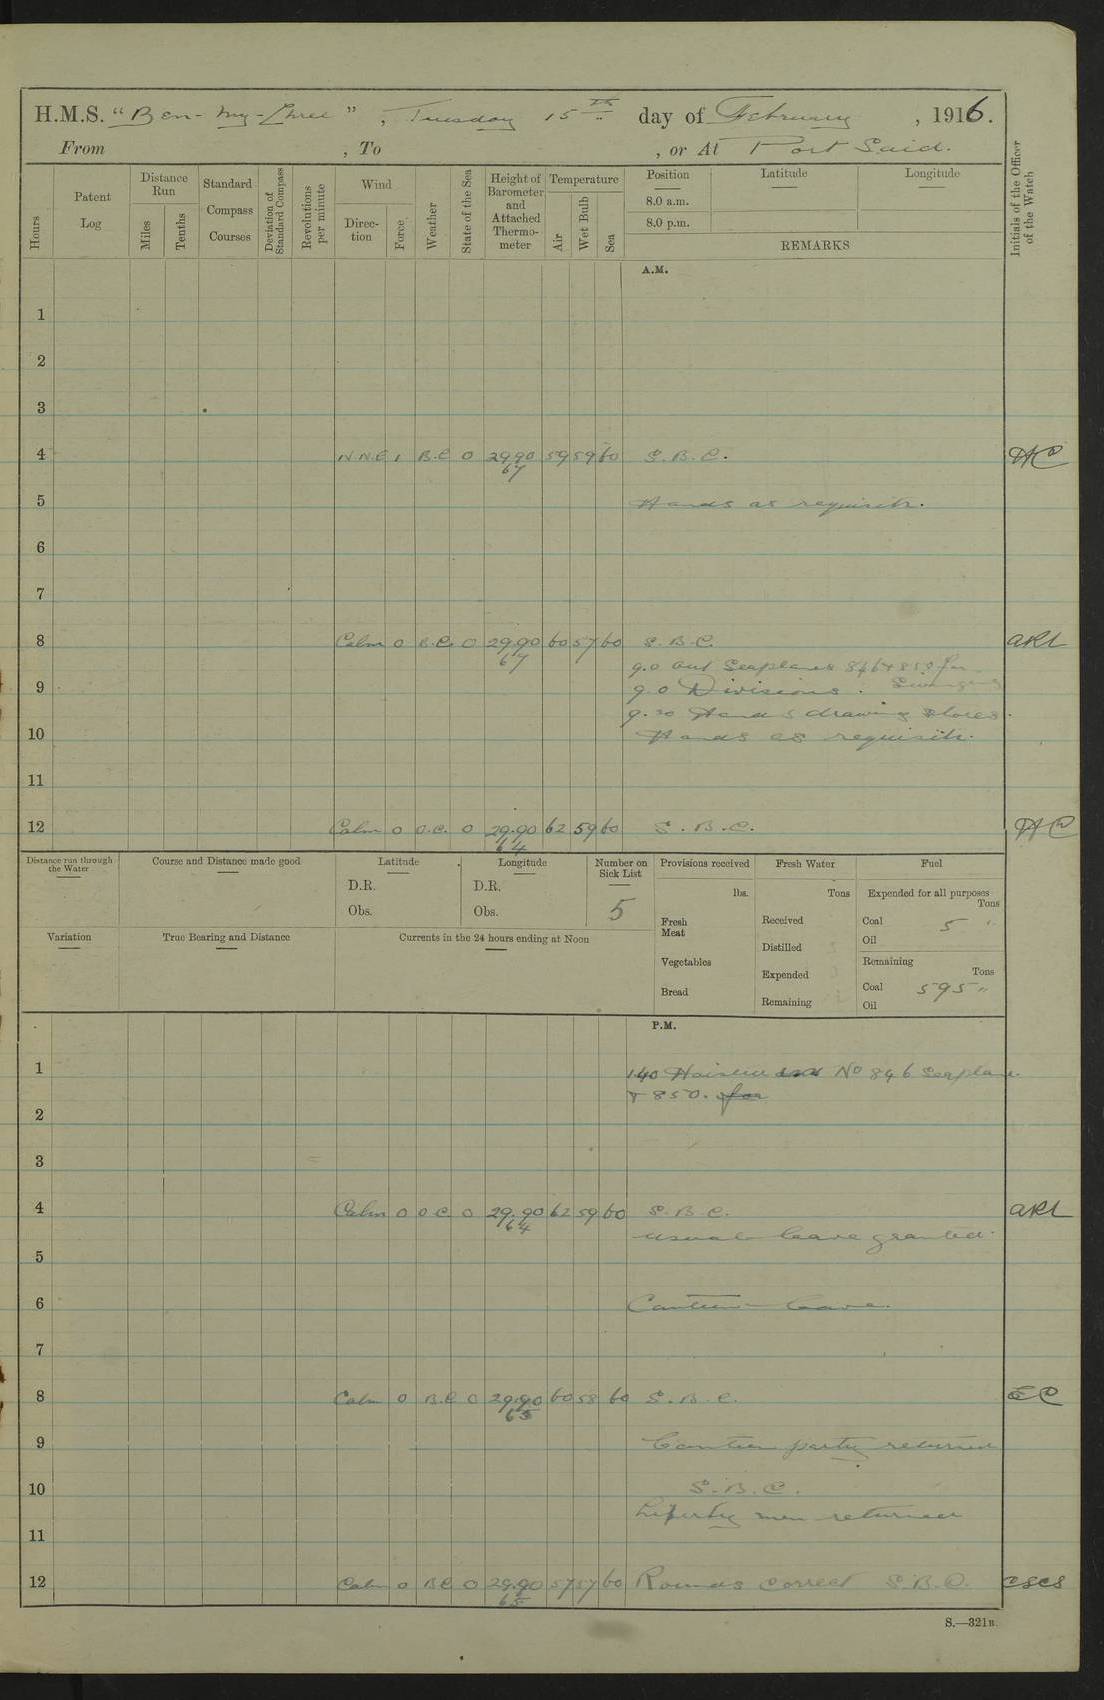 H.M.S. "Ben-my-Chree", Tuesday 15th day of February, 1916.
From , To , or At Port Said.
Hours
Patent Log
Distance Run
Miles
Tenths
Standard Compass Courses
Deviation of Standard Compass
Revolutions per minute
Wind
Direction
Force
Weather
State of the Sea
Height of Barometer and Attached Thermometer
Temperature
Air
Wet Bulb
Sea
Position
8.0 a.m.
8.0 p.m.
Latitude
Longitude
REMARKS
Initials of the Officer of the Watch
A.M.
1
2
3
4 N.N.E 1 B.C 0 29.90 59 59 60 S.B.C.
67
5 Hands as requisite.
6
7
8 Calm 0 B.C. 0 29.90 60 57 60 S.B.C. ARL
67
9.0 out Seaplanes 846 & 850 for
9 9.0 Divisions. Swinging
9.30 Hands drawing stores.
10 Hands as requisite.
11
12 Calm 0 O.C. 0 29.90 62 59 60 S.B.C.
64
Distance run through the Water
Course and Distance made good
Latitude
D.R.
Obs.
Longitude
D.R.
Obs.
Number on Sick List
5
Provisions received
lbs.
Fresh Meat
Vegetables
Bread
Fresh Water
Tons
Received
Distilled
Expended
Remaining
Fuel
Expended for all purposes
Tons
Coal 5 "
Oil
Remaining
Tons
Coal 595 "
Oil
Variation
True Bearing and Distance
Currents in the 24 hours ending at Noon
P.M.
1 1.40 Hoisted No 846 Seaplane
& 850. for
2
3
4 Calm 0 O.C. 0 29.90 62 59 60 S.B.C. ARL
64
usual leave granted.
5
6 Canteen leave.
7
8 Calm 0 B.C 0 29.90 60 58 60 S.B.C. EC
65
9 Canteen party returned
10 S.B.C.
Liberty men returned
11
12 Calm 0 B.C 0 29.90 57 57 60 Rounds correct S.B.C. CSCS
65
S.—321B.